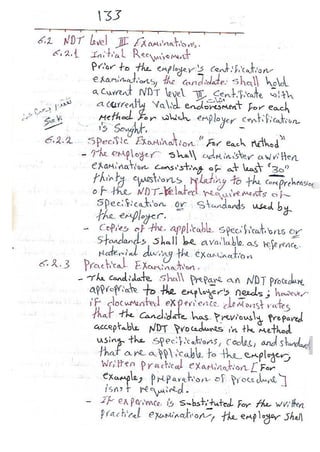 133
6.2 NDT Level III Examinations.
6.2.1 Initial Requirement
Prior to the employer's certification
examinations, the candidate shall hold
a current NDT level III Certificate with
a currently valid endorsement for each
Method for which employer certification
is sought.
6.2.2 Specific Examination "For each Method"
- The employer shall administer a written
examination consisting of at least "30"
thirty questions relating to the comprehension
of the NDT-Related requirements of
Specification or Standards used by
the employer.
- Copies of the applicable specifications or
Standards shall be available as reference
Material during the examination
6.2.3 Practical Examination.
- The candidate shall prepare an NDT procedure
appropriate to the employer's needs; however
if documented experience demonstrates
that the candidate has previously prepared
acceptable NDT Procedures in the Method
using the specifications, codes, and standard
that are applicable to the employer,
written practical examination [For
example, preparation of procedure]
isn't required.
- If experience is substituted for the written
practical examination, the employer shall